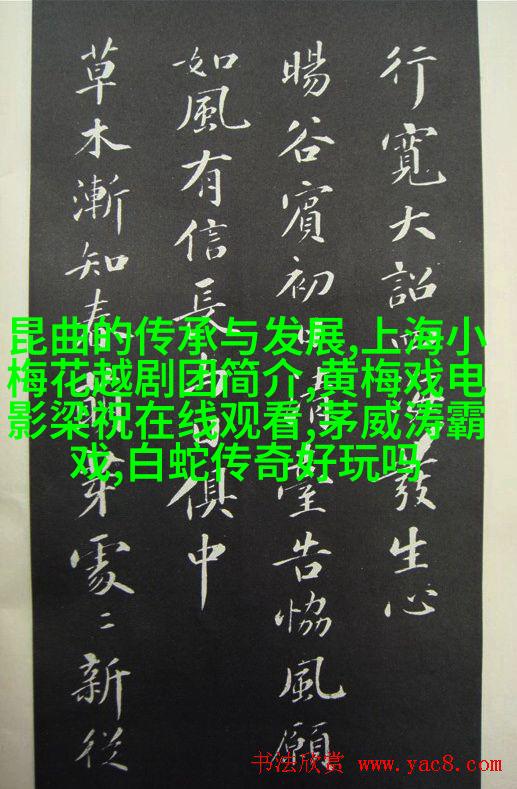 昆曲的传承与发展,上海小
梅花越剧团简介,黄梅戏电
影梁祝在线观看,茅威涛霸
戏,白蛇传奇好玩吗
行寬大詔發生心
暘谷賓初日清臺告協風願
如風有信長與日俱中
草木漸知春萌芽處〻新從
书法欣赏 www.yac8.com